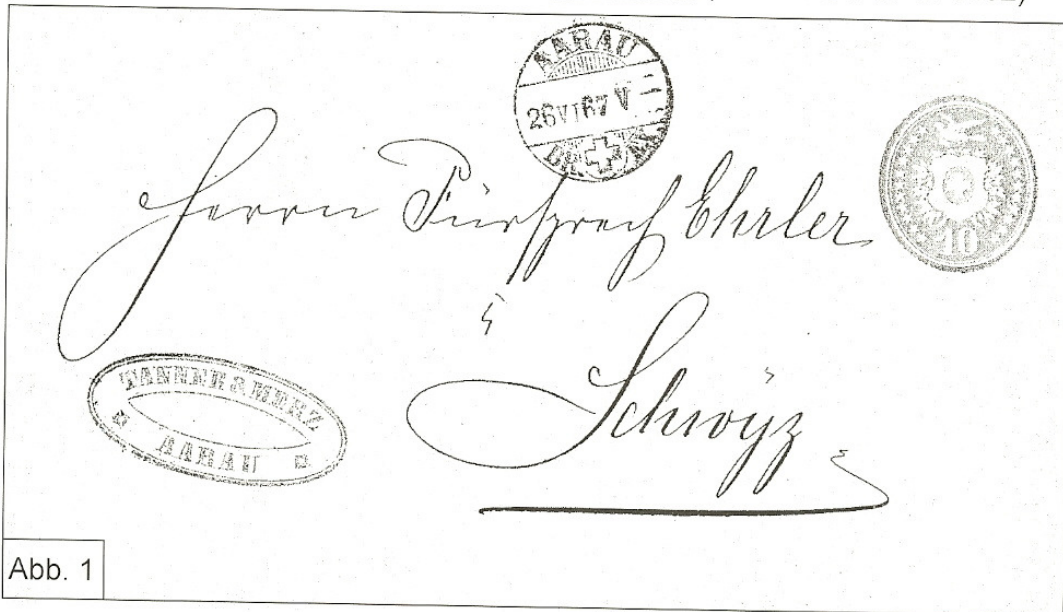 AARAU
26 VI 67 V
10
Herrn Fürsprech Ehrler
Schwÿz
TANNER & MERZ
AARAU
Abb. 1